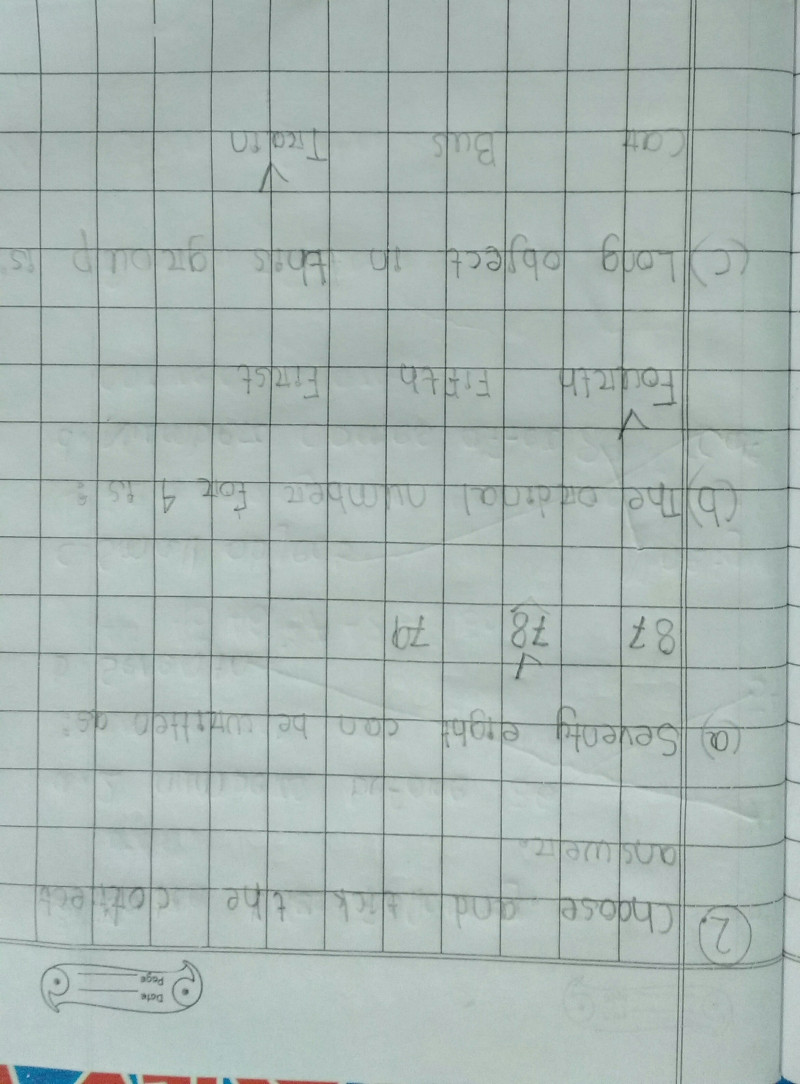 Date
Page
2. Choose and tick the correct
answer.
(a) Seventy eight can be written as:
87 ✓78 79
(b) The ordinal number for 4 is:
✓Fourth Fifth First
(c) Long object in this group is:
Car Bus ✓Train